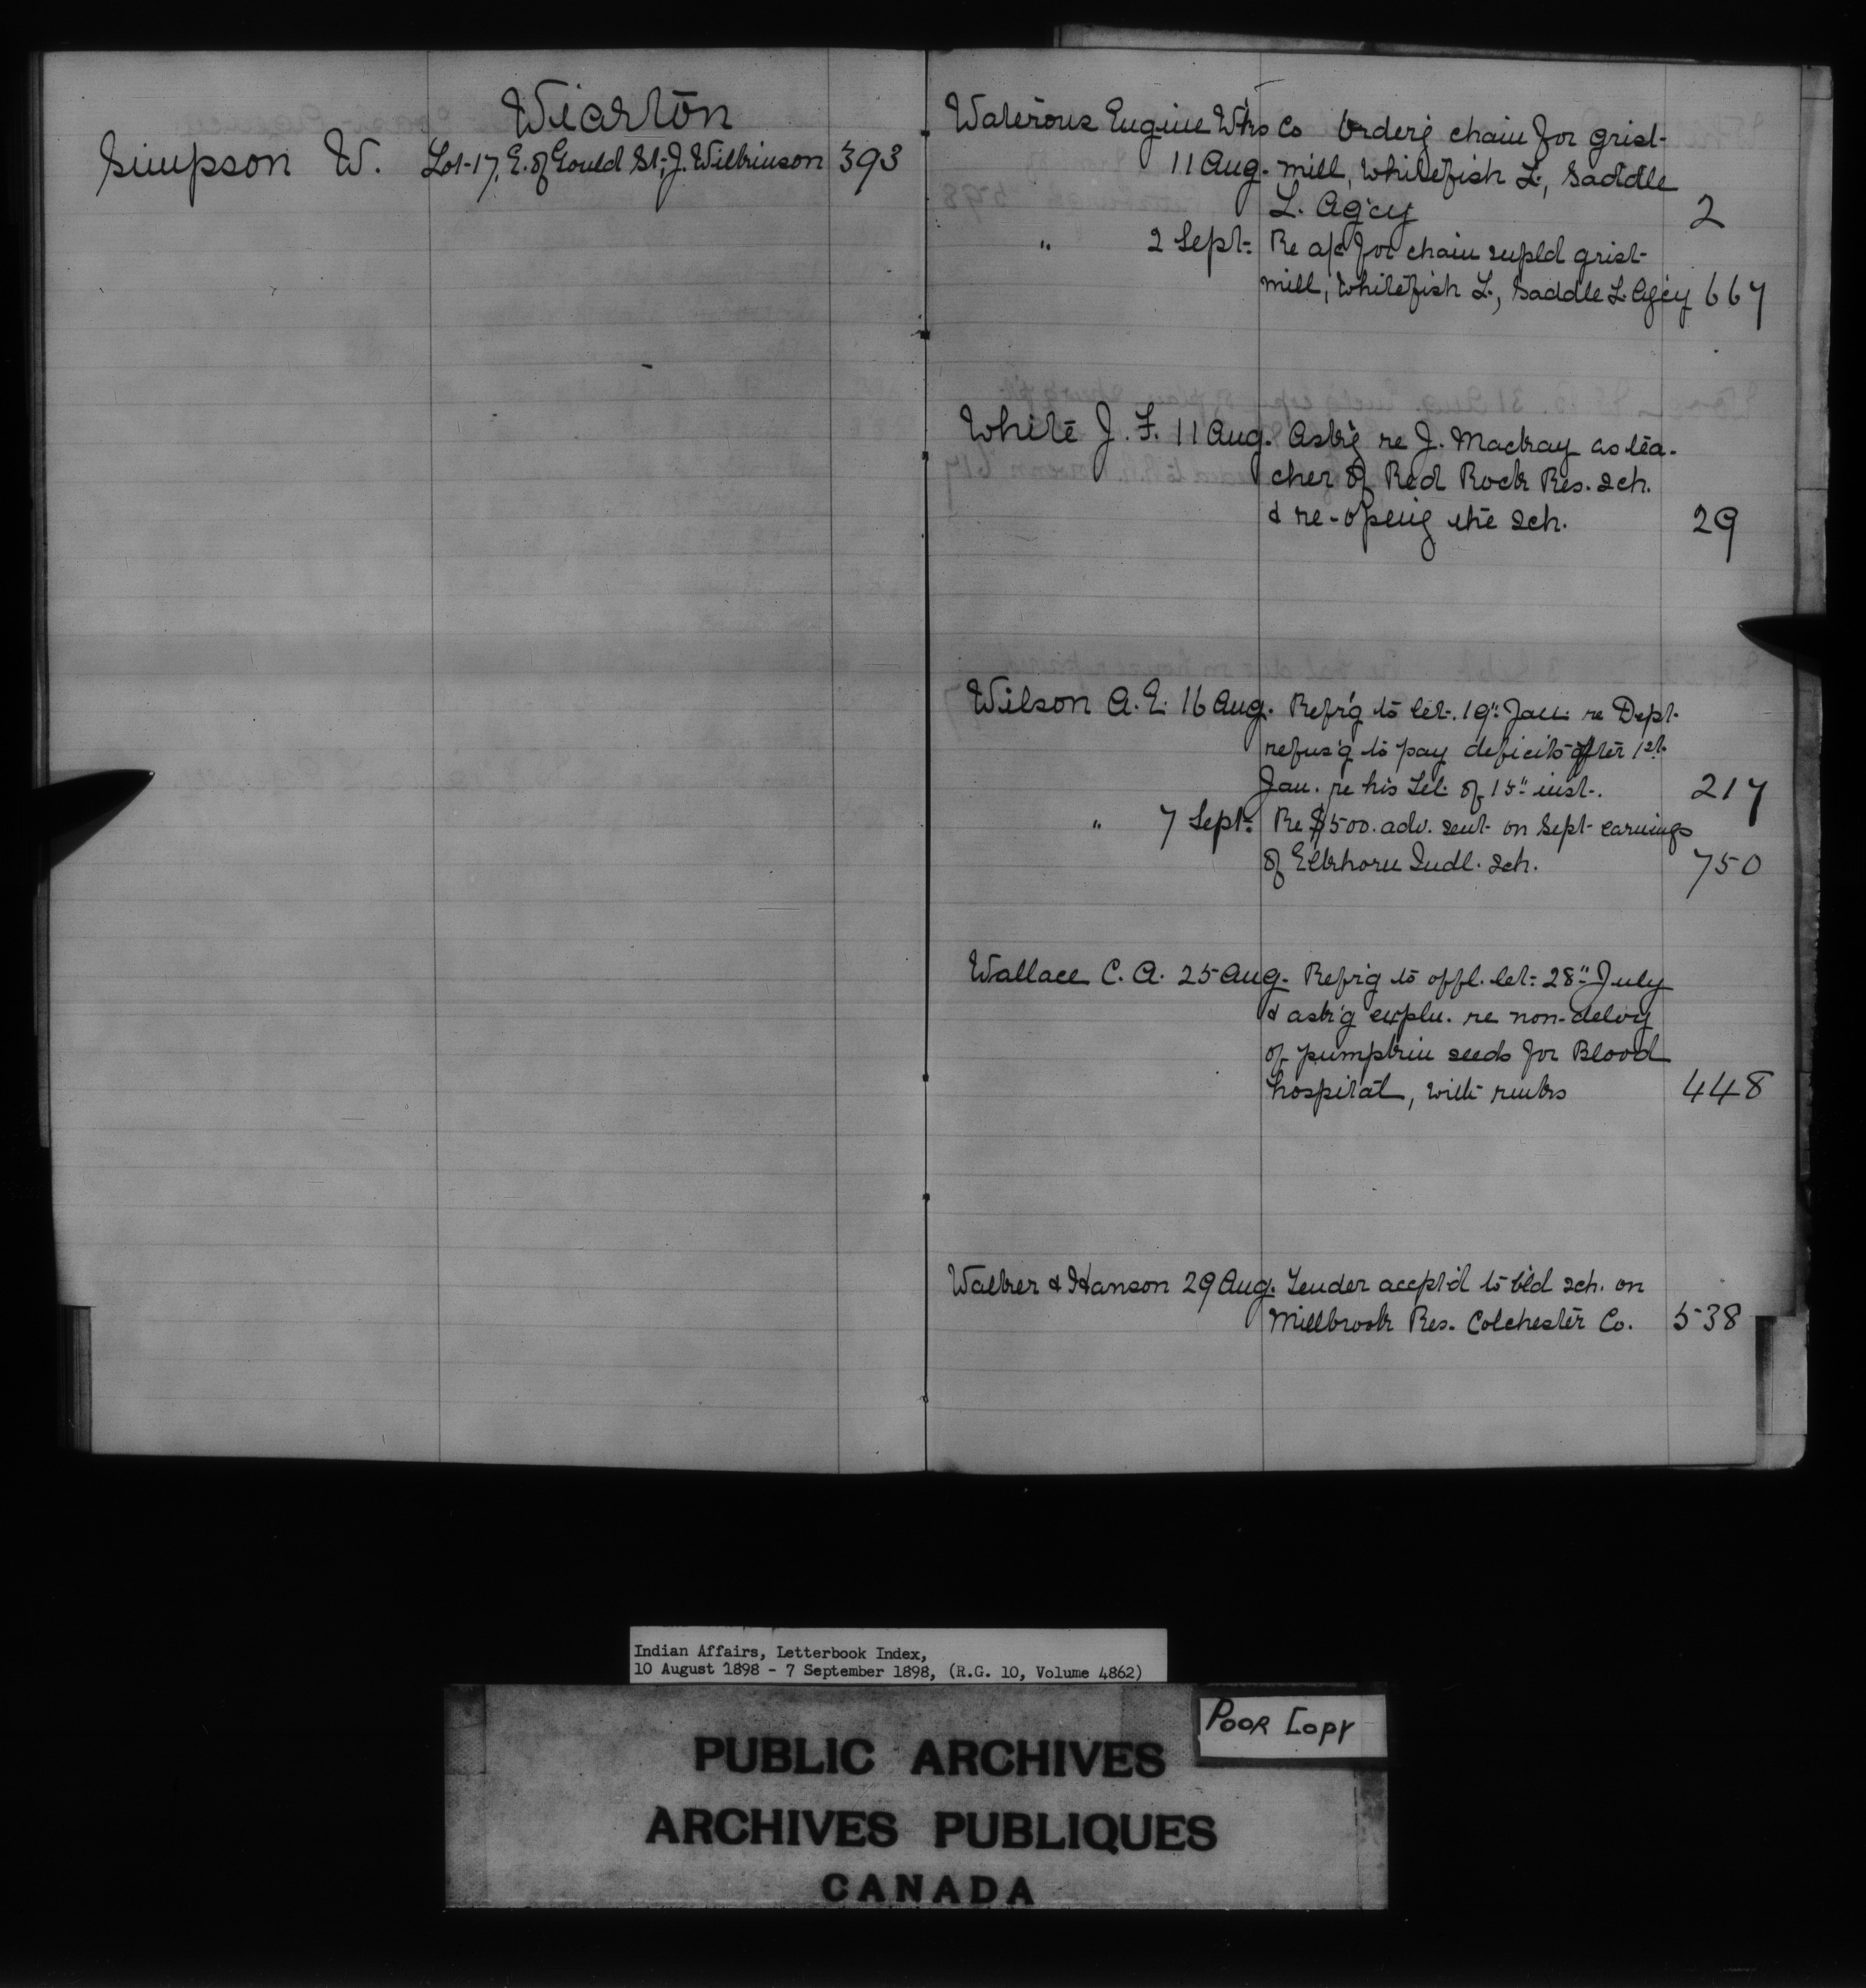 Wiarton
Simpson W. Lot 17, E. of Gould St; J. Wilkinson 393
Waterous Engine Wks Co Orderg chain for grist
11 Aug. mill, Whitefish L., Saddle
L. Agcy 2
" 2 Sept. Re a/c for chain supld grist
mill, Whitefish L., Saddle L. Agcy 667
White J. F. 11 Aug. Askg re J. Mackay as tea-
cher of Red Rock Res. sch.
& re-openg the sch. 29
Wilson A. E. 16 Aug. Refr'g to let. 19" Jan. re Dept.
refus'g to pay deficits after 1st
Jan. re his let. of 15" inst. 217
" 7 Sept. Re $500. adv. sent on Sept earnings
of Elkhorn Indl. sch. 750
Wallace C. A. 25 Aug. Refr'g to offl. let. 28" July
& ask'g expln. re non-delvy
of pumpkin seeds for Blood
hospital, with rmks 448
Walker & Hanson 29 Aug. Tender accpt'd to b'ld sch. on
Millbrook Res. Colchester Co. 538
Indian Affairs, Letterbook Index,
10 August 1898 - 7 September 1898, (R.G. 10, Volume 4862)
Poor Copy
PUBLIC ARCHIVES
ARCHIVES PUBLIQUES
CANADA